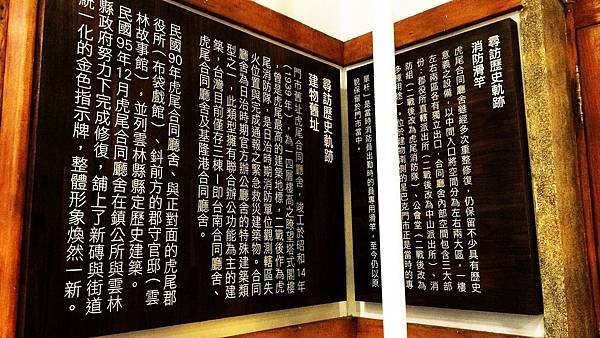 尋訪歷史軌跡
消防滑竿
虎尾合同廳舍雖經多次重整修復，仍保留不少具有歷史
意義之設備，以中間入口將空間分為左右兩大區，一樓
左右兩區各有獨立出口，合同廳舍內部空間包含三大部
份：郡役所直轄派出所（二戰後改為中山派出所）、消
防組（二戰後改為虎尾消防隊）、公會堂（二戰後改為
多種用途），位於建物南側的星巴克門市正是當時的
是當時消防員出動時的員專用滑竿，至今仍以原
貌保留於門市當中。
尋訪歷史軌跡
建物舊址
門市舊址虎尾合同廳舍，竣工於昭和14年
（1939年），為一四層樓高之瞭望塔式閣樓
，曾是虎尾最高的建築地標，二戰後作為虎
尾消防隊，是日治時期消防單位觀測轄區失
火位置與完成通報之緊急救災建築物。合同
廳舍為日治時期官方辦公廳舍的特殊建築類
型之一，此類型擁有聯合辦公功能為主的建
築，台灣目前僅存三棟－即台南合同廳舍、
虎尾合同廳舍及基隆港合同廳舍。
民國90年虎尾合同廳舍、與正對面的虎尾郡
役所（布袋戲館）、斜前方的郡守官邸（雲
林故事館），並列雲林縣縣定歷史建築。
民國95年12月虎尾合同廳舍在鎮公所與雲林
縣政府努力下完成修復，舖上了新磚與街道
統一化的金色指示牌，整體形象煥然一新。